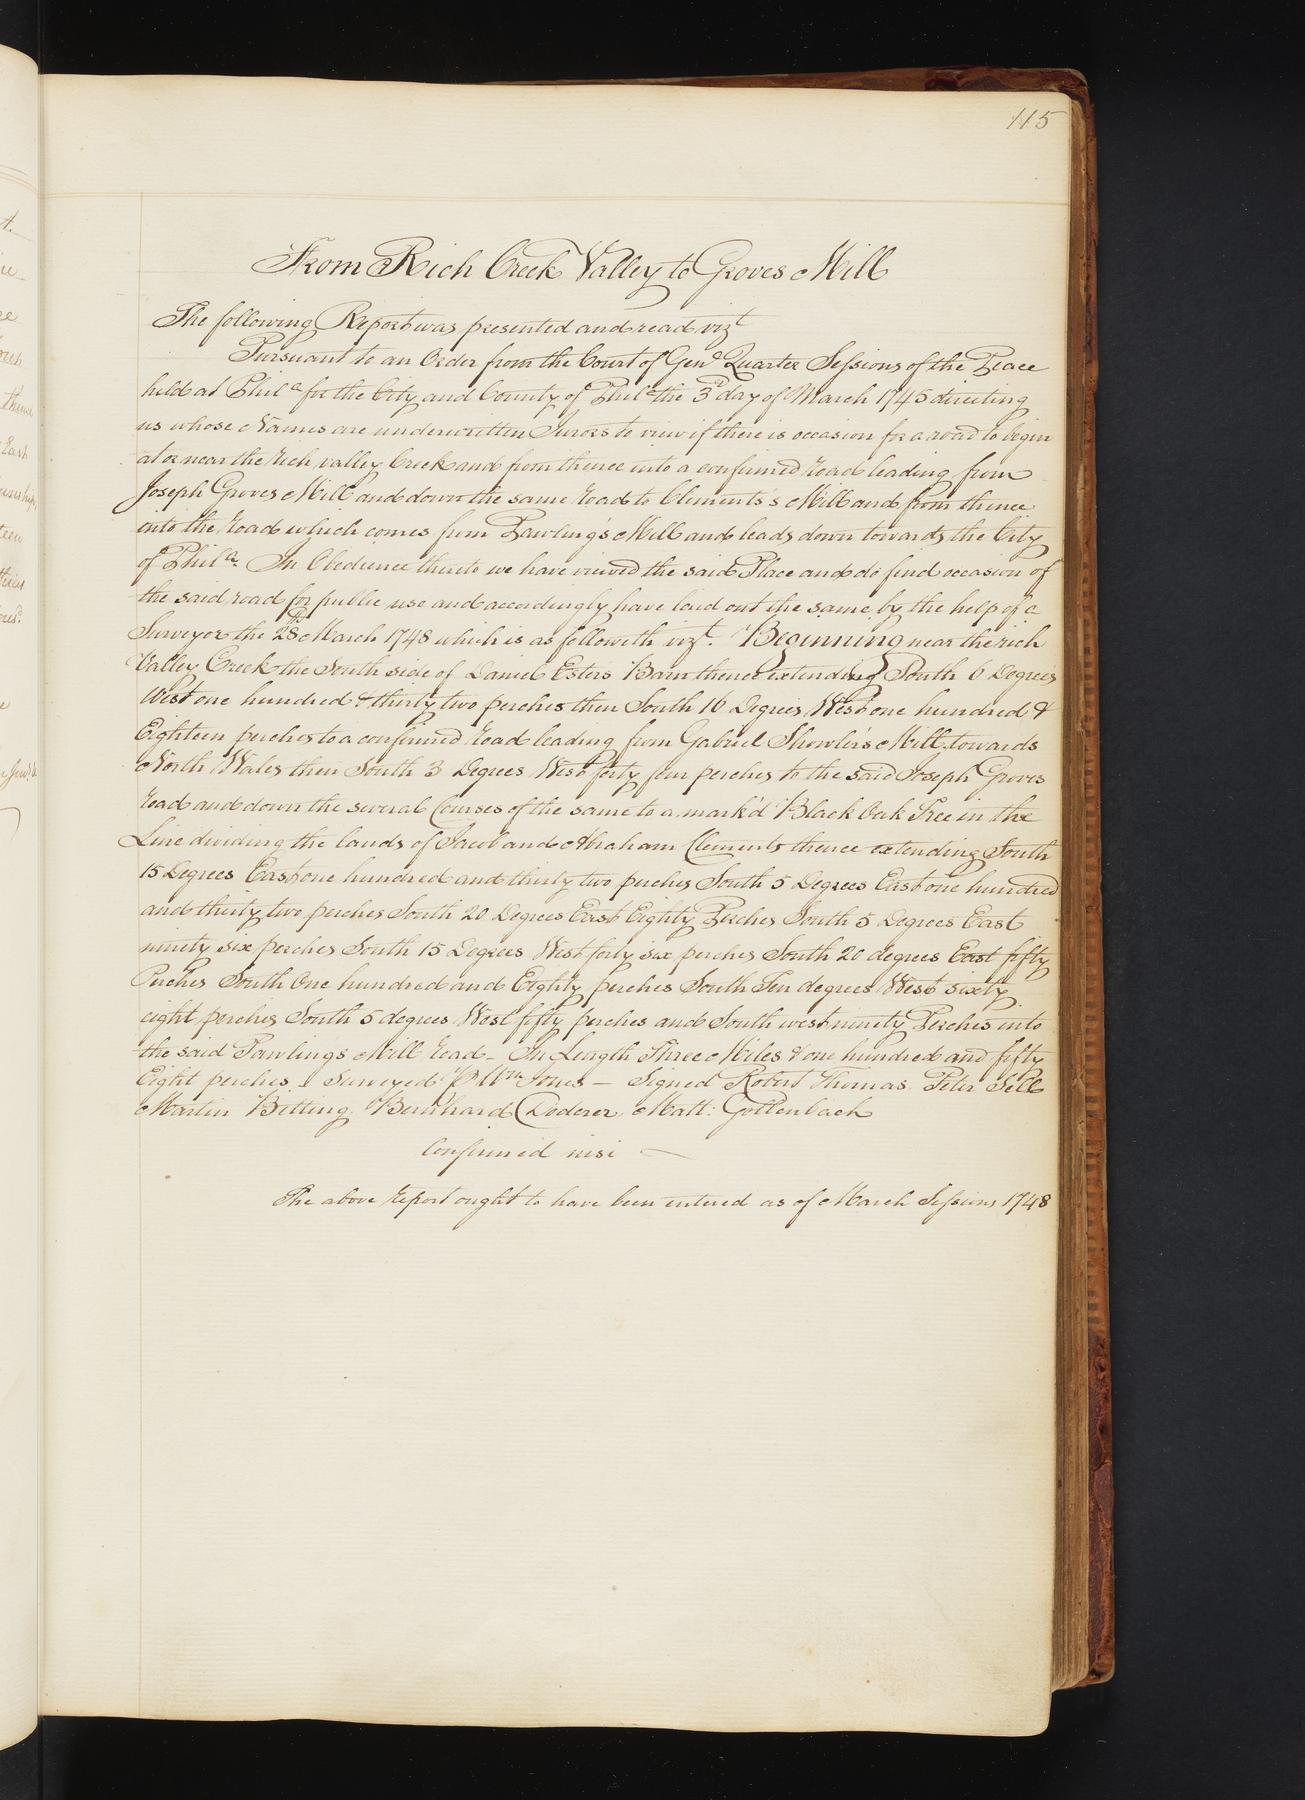 115
From Rich Creek Valley to Groves Mill
The following Report was presented and read vizt
Pursuant to an Order from the Court of Genl Quarter Sessions of the Peace
held at Phila for the City and County of Phila the 3d day of March 1745 directing
us whose Names are underwritten Jurors to view if there is occasion for a road to begin
at or near the Rich valley Creek and from thence into a confirmed road leading from
Joseph Groves Mill and down the same road to Clements's Mill and from thence
into the road which comes from Pawling's Mill and leads down towards the City
of Phila. In Obedience thereto we have viewed the said Place and do find occasion of
the said road for public use and accordingly have laid out the same by the help of a
Surveyor the 28th March 1748 which is as followeth vizt. Beginning near the rich
Valley Creek the South side of Daniel Esters Barn thence extending South 6 Degrees
West one hundred & thirty two perches then South 16 Degrees West one hundred &
Eighteen perches to a confirmed road leading from Gabriel Showler's Mill towards
North Wales then South 3 Degrees West forty four perches to the said Joseph Groves
road and down the several Courses of the same to a mark'd Black Oak Tree in the
Line dividing the lands of Jacob and Abraham Clements thence extending South
15 Degrees East one hundred and thirty two perches South 5 Degrees East one hundred
and thirty two perches South 20 Degrees East Eighty Perches South 5 Degrees East
ninety six perches South 15 Degrees West forty six perches South 20 degrees East fifty
Perches South One hundred and Eighty perches South Ten degrees West sixty
eight perches South 5 degrees West fifty perches and South west ninety Perches into
the said Pawling's Mill road - In Length Three Miles & one hundred and fifty
Eight perches - Surveyed P Wm Jones - Signed Robert Thomas Peter Sell
Martin Bitting Bernhard Dederer Matt: Gollenbach
Confirmed nisi
The above report ought to have been entered as of March Sessions 1748